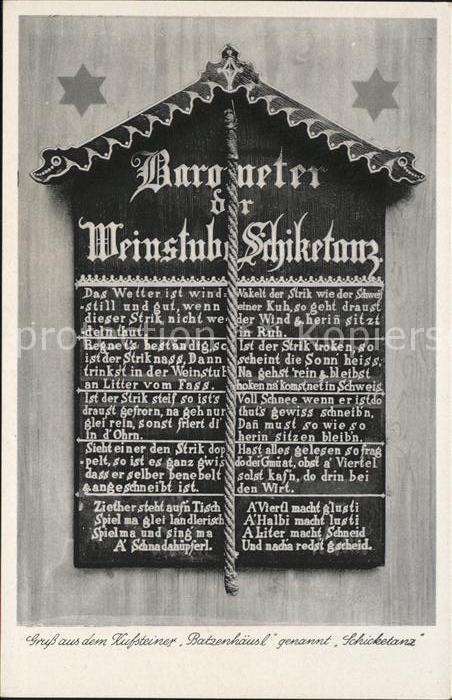 Barometer
der
Weinstube Schiketanz.
Das Wetter ist wind-
still und gut, wenn
dieser Strik, nicht we-
deln thut.
Regnet's beständig, so
ist der Strik nass, Dann
trinkst in der Weinstub
an Litter vom Fass.
Ist der Strik steif so ist's
draust gefrorn, na geh nur
glei rein, sonst friert di'
in d'Ohrn.
Sieht einer den Strik dop
pelt, so ist es ganz gwis
dass er selber benebelt
& angeschneibt ist.
Ziether steht auf'n Tisch
Spiel ma glei landlerisch
Spiel ma und sing ma
A' Schnadahüpferl.
Wakelt der Strik wie der Schweif
einer Kuh, so geht draust
der Wind & herin sitzt
in Ruh.
Ist der Strik troken, so
scheint die Sonn' heiss,
Na gehst 'rein & bleibst
hoken na komst net in Schweis.
Voll Schnee wenn er ist do
thut's gewiss schneibn,
Dan̄ must so wie so
herin sitzen bleib'n.
Hast alles gelesen so frag
do dei Gmüat, obst a' Viertel
solst kaf'n, do drin bei
den Wirt.
A' Viertl macht glusti
A' Halbi macht lusti
A Liter macht Schneid
Und nacha redst gscheid.
Gruß aus dem Kufsteiner „Batzenhäusl" genannt „Schicketanz"